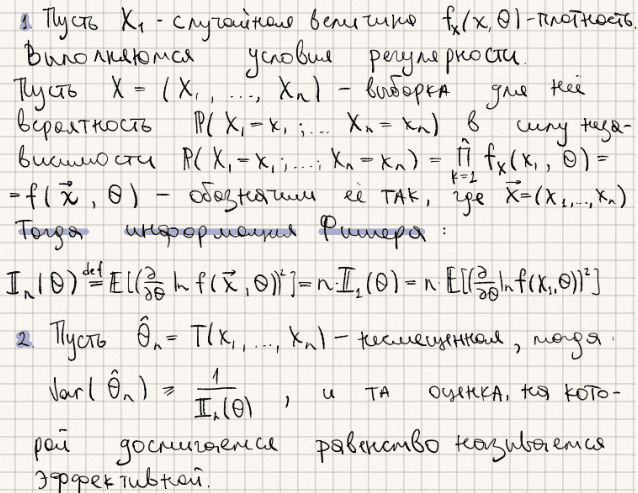 1. Пусть X₁ - случайная величина f_X(x, θ) - плотность.
Выполняются условия регулярности.
Пусть X = (X₁, ..., Xₙ) - выборка для неё
вероятность ℙ(X₁=x₁; ... Xₙ=xₙ) в силу неза-
висимости ℙ(X₁=x₁; ...; Xₙ=xₙ) = ∏ₖ₌₁ⁿ f_X(x₁, θ) =
= f(x⃗, θ) - обозначим её ТАК, где x⃗=(x₁,...,xₙ)
Тогда информация Фишера :
𝕀ₙ(θ) ≝ 𝔼[(∂/∂θ ln f(x⃗, θ))²] = n·𝕀₁(θ) = n·𝔼[(∂/∂θ ln f(x₁, θ))²]
2. Пусть θ̂ₙ = T(x₁, ..., xₙ) - несмещенная, тогда :
Var(θ̂ₙ) ≥ 1/𝕀ₙ(θ) , и та оценка, на кото-
рой достигается равенство называется
эффективной.